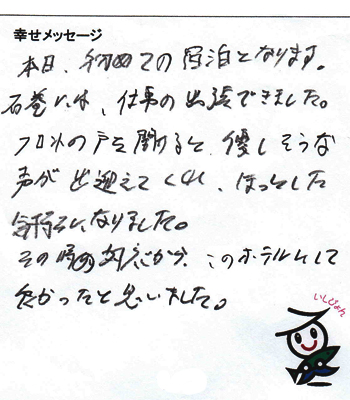 幸せメッセージ
本日、初めての宿泊となります。
石巻には、仕事の出張できました。
フロントの戸を開けると、優しそうな
声が出迎えてくれ、ほっとした
気持ちになりました。
その時の対応から、このホテルにして
良かったと思いました。
いしぴょん